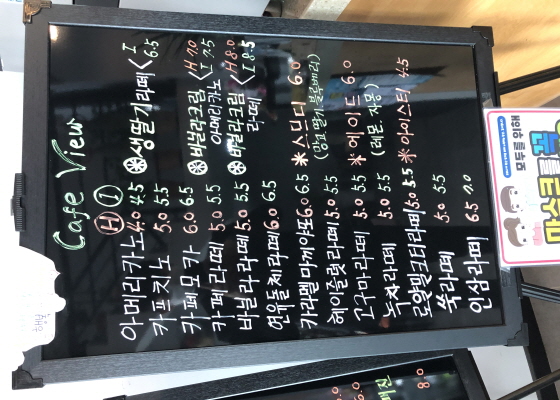 Cafe View
H I
아메리카노 4.0 4.5
카푸치노 5.0 5.5
카페모카 6.0 6.5
카페라떼 5.0 5.5
바닐라라떼 5.0 5.5
연유돌체라떼 6.0 6.5
카라멜마끼아또 6.0 6.5
헤이즐럿라떼 5.0 5.5
고구마라떼 5.0 5.5
녹차라떼 5.0 5.5
로얄밀크티라떼 5.0 5.5
쑥라떼 5.0 5.5
인삼라떼 6.5 7.0
생딸기라떼 < I 6.5
바닐라크림 < H 7.0
아메리카노 I 7.5
바닐라크림 < H 8.0
라떼 I 8.5
*스무디 6.0
(망고 딸기 블루베리)
*에이드 6.0
(레몬 자몽)
*아이스티 4.5
모두를 위해
마스크 꼭
8.0